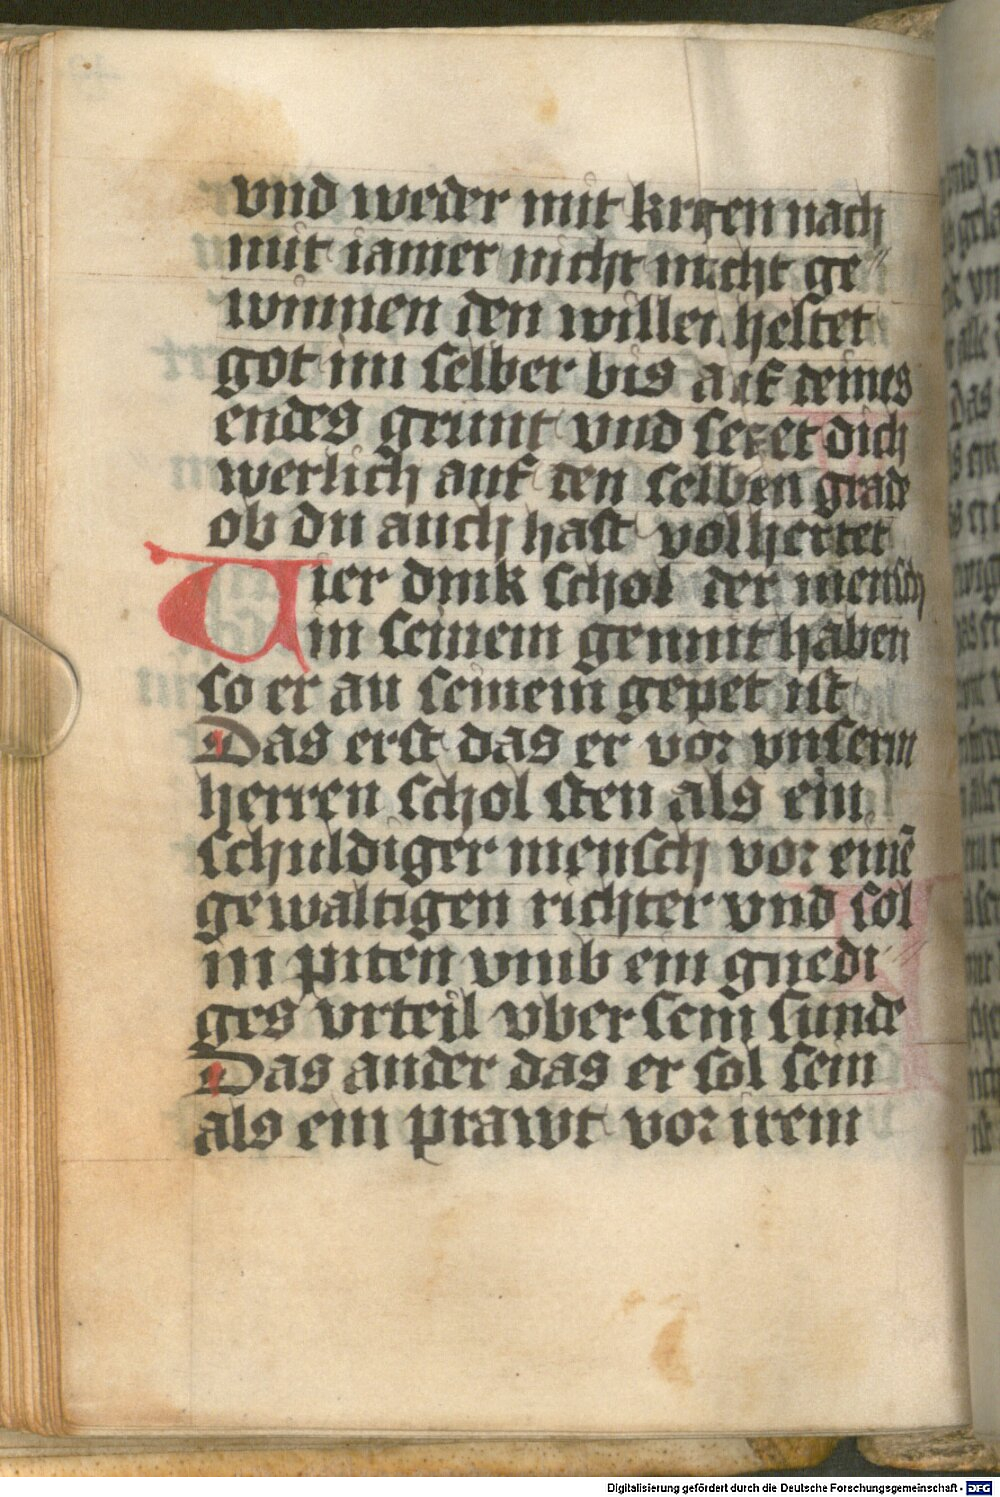 vnd weder mit krigen nach
mit iamer nicht macht ge
winnen den willen hestet
got im selber bis auf deines
endes grunt vnd seczet dich
werlich auf den selben grade
ob du auch hast volhertet
Vier dink schol der mensch
in seinem gemut haben
so er an seinem gepet ist
Das erst das er vor vnserm
herren schol sten als ein
schuldiger mensch vor eimē
gewaltigen richter vnd sol
in piten vmb ein gnedi
ges vrteil vber sein sunde
Das ander das er sol sein
als ein prawt vor irem
Digitalisierung gefördert durch die Deutsche Forschungsgemeinschaft - DFG